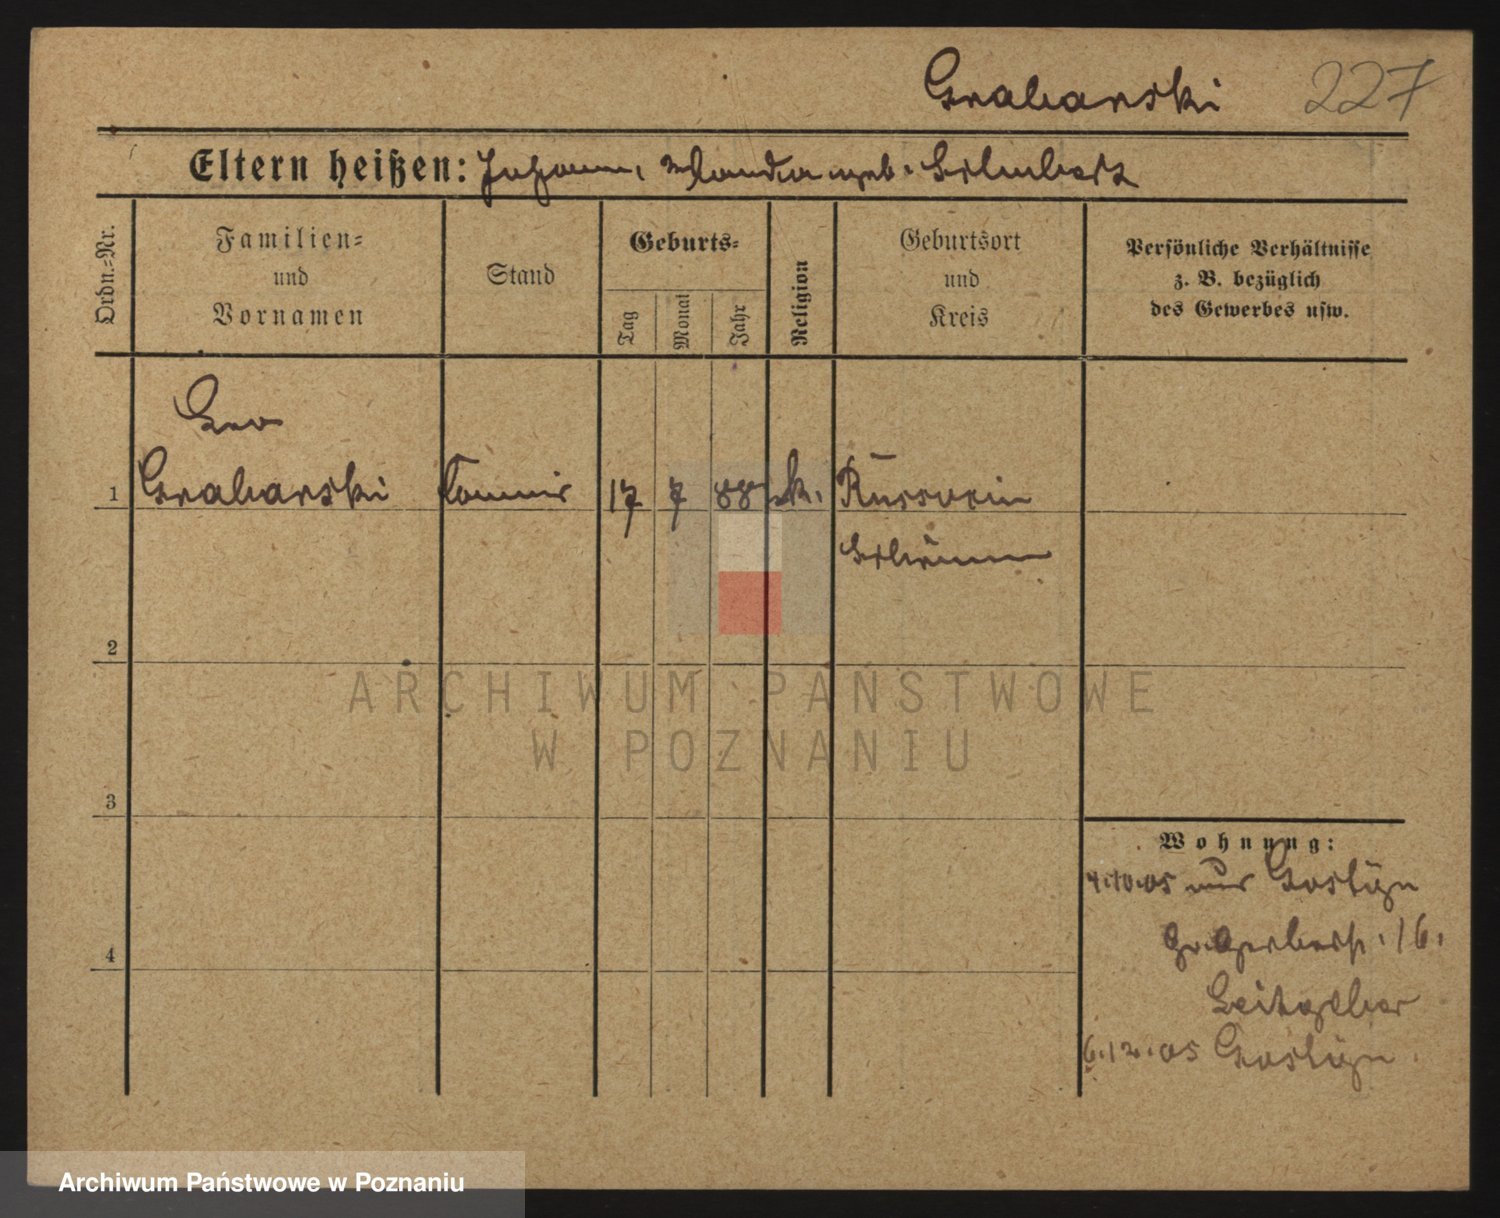 Grabarski 227
Eltern heißen: Johann, Wanda geb.
Ordn.-Nr.
Familien-
und
Vornamen
Stand
Geburts-
Tag
Monat
Jahr
Religion
Geburtsort
und
Kreis
Persönliche Verhältnisse
z. B. bezüglich
des Gewerbes usw.
Leo
1 Grabarski Commis 17 7 88 k.
2
3
4
Wohnung:
4.10.05 Gostyn
16.
Leitgeber
6.12.05 Gostyn.
ARCHIWUM PAŃSTWOWE
W POZNANIU
Archiwum Państwowe w Poznaniu